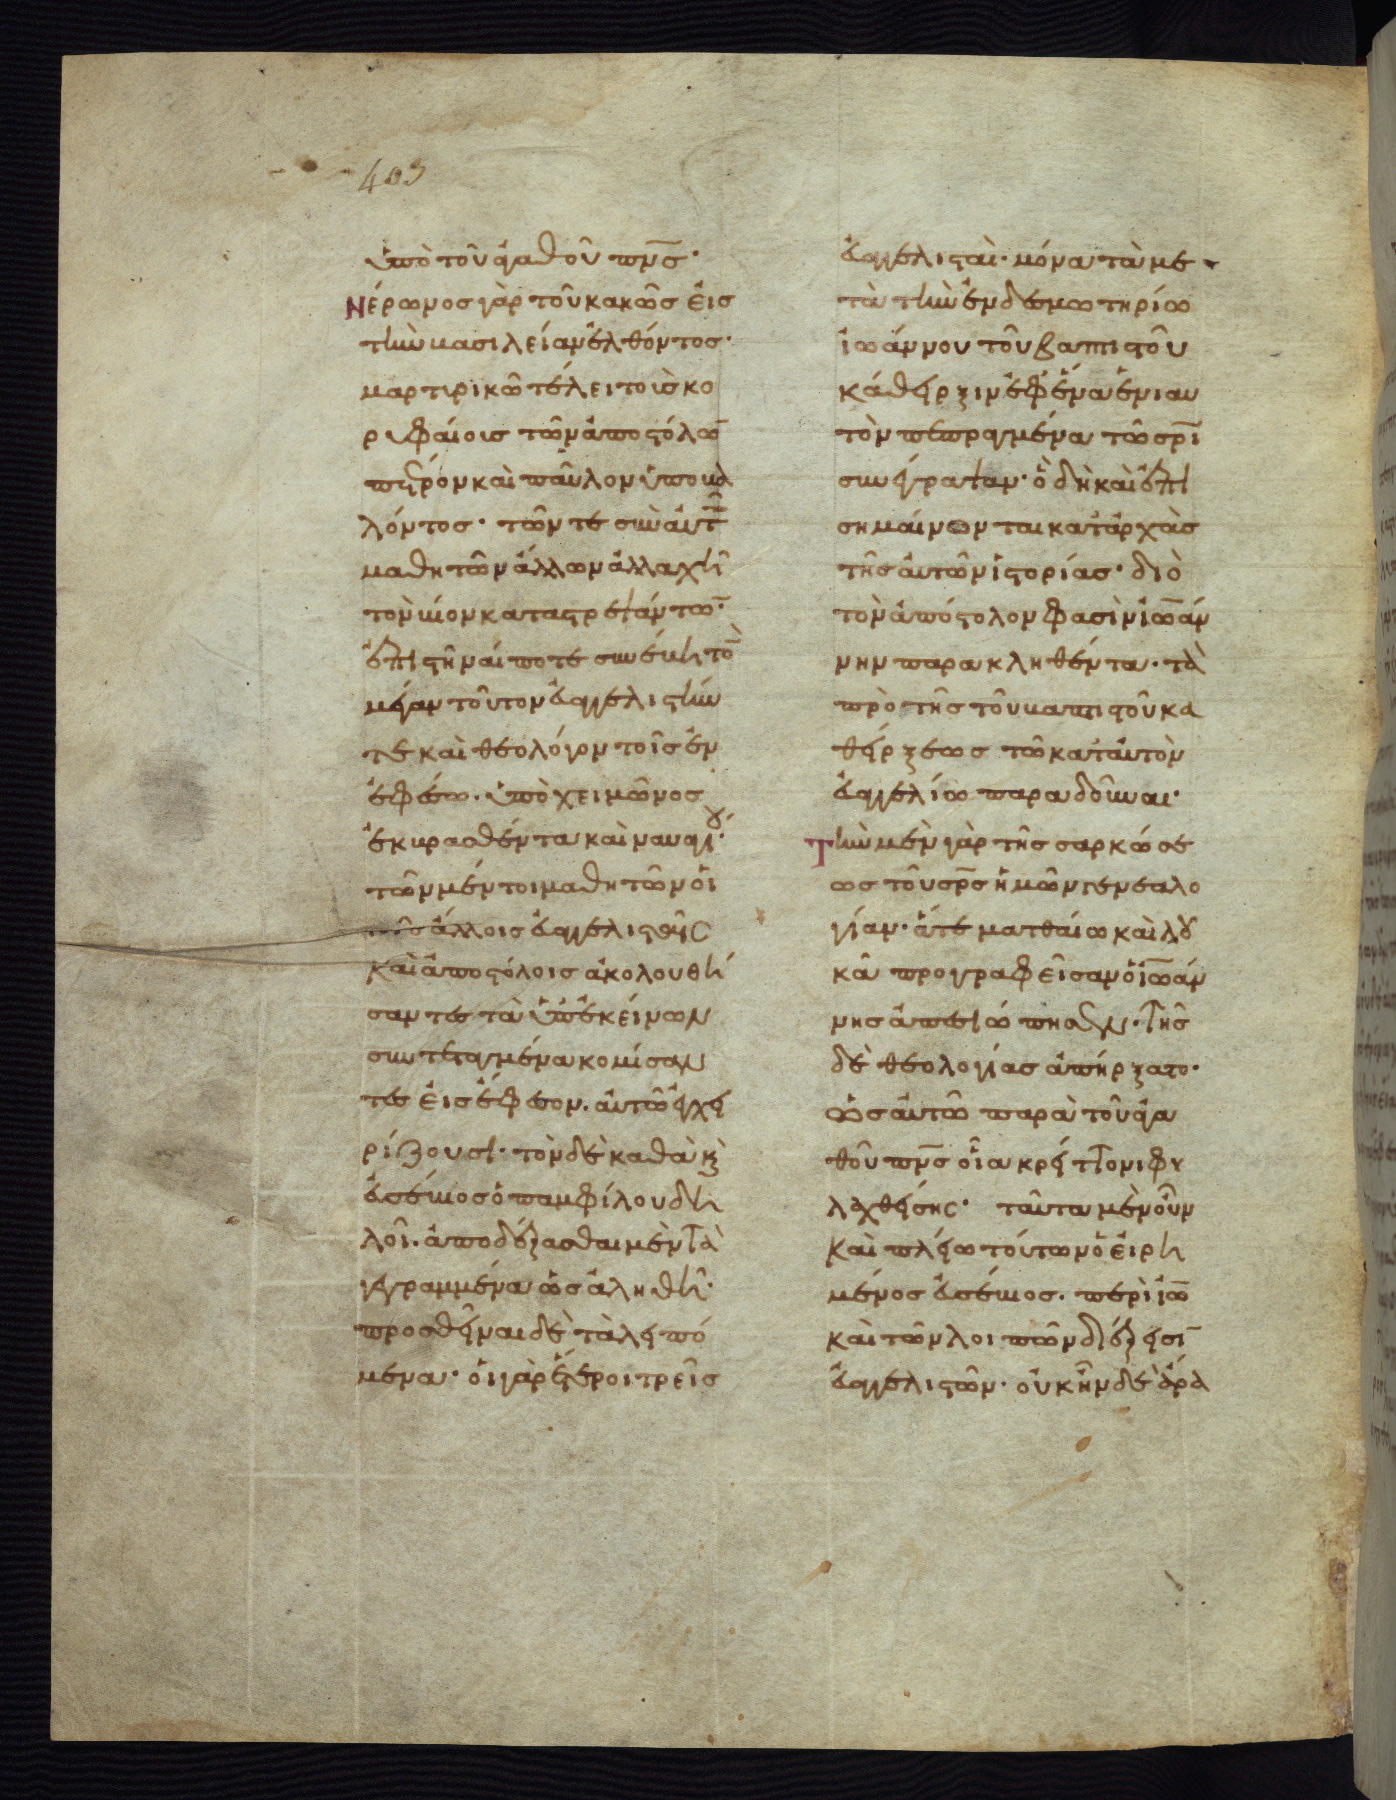 403
ὑπὸ τοῦ ἀγαθοῦ πνς·
Νέρωνος γὰρ τοῦ κακῶς εἰς
τὴν βασιλείαν ἐλθόντος·
μαρτιρικῶ τέλει τοὶς κο
ριφαίοις τῶν ἀποστόλω̅
πέτρον καὶ παῦλον ὑποβα
λόντος· τῶν τε σὺν αὐτ
μαθητῶν ἄλλων ἀλλαχῆ
τὸν βίον καταστρεψάντω̅·
ἐπὶ στῆναί ποτε συνέβη το
μέγαν τοῦτον εὐαγγελιστὴν
τε καὶ θεολόγον τοῖς ἐν
ἐφέσω. ὑπὸ χειμῶνος
ἐκβρασθέντα καὶ ναυαγου·
τῶν μέντοι μαθητῶν οἱ
τοῖς ἄλλοις εὐαγγελισταῖς
καὶ ἀποστόλοις ἀκολουθή
σαντες τὰ ὑπ' ἐκείνων
συντεταγμένα κομίσαν
τες εἰς ἔφεσον. αὐτῶ ἐγχει
ρίζουσι· τὸν δὲ καθὰ καὶ
εὐσέβιος ὁ παμφίλου δη
λοῖ. ἀποδέξασθαι μὲν τὰ
γεγραμμένα ὡς ἀληθῆ·
προσθεῖναι δὲ τὰ λειπό
μενα· οἱ γὰρ ἕτεροι τρεῖς
εὐαγγελισταὶ· μόνα τὰ με
τὰ τὴν ἐν δεσμωτηρίω
ἰωάννου τοῦ βαπτιστοῦ
κάθειρξιν ἐφ' ἕνα ἐνιαυ
τὸν πεπραγμένα τῶ σρι
συνέγραψαν· ὃ δὴ καὶ ἐπι
σημαίνονται κατ' ἀρχὰς
τῆς αὐτῶν ἱστορίας· διὸ
τὸν ἀπόστολον φασὶν ἰωάν
νην παρακληθέντα· τὰ
πρὸ τῆς τοῦ βαπτιστοῦ κα
θείρξεως τῶ κατ' αὐτὸν
εὐαγγελίω παραδοῦναι·
Τὴν μὲν γὰρ τῆς σαρκώσε
ως τοῦ σρς ἡμῶν γενεαλο
γίαν· ἅτε ματθαίω καὶ λου
κᾶ προγραφεῖσαν ὁ ἰωάν
νης ἀπεσιώπησεν· τῆς
δὲ θεολογίας ἀπήρξατο·
ὡς αὐτῶ παρὰ τοῦ ἀγα
θοῦ πνς οἷα κρείττονι φυ
λαχθείσης· ταῦτα μὲν οὖν
καὶ πλείω τούτων ὁ εἰρη
μένος εὐσέβιος. περὶ ἰω̅
καὶ τῶν λοιπῶν διέξεισι
εὐαγγελιστῶν· οὐκ ἦν δὲ ἄρα